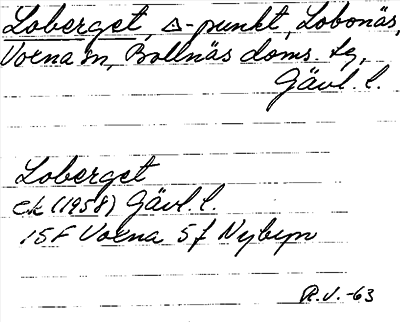 Loberget, △-punkt, Lobonäs,
Voxna sn, Bollnäs doms. tg,
Gävl. l.
Loberget
ek (1958) Gävl. l.
15F Voxna 5f Nybyn
R.J. -63